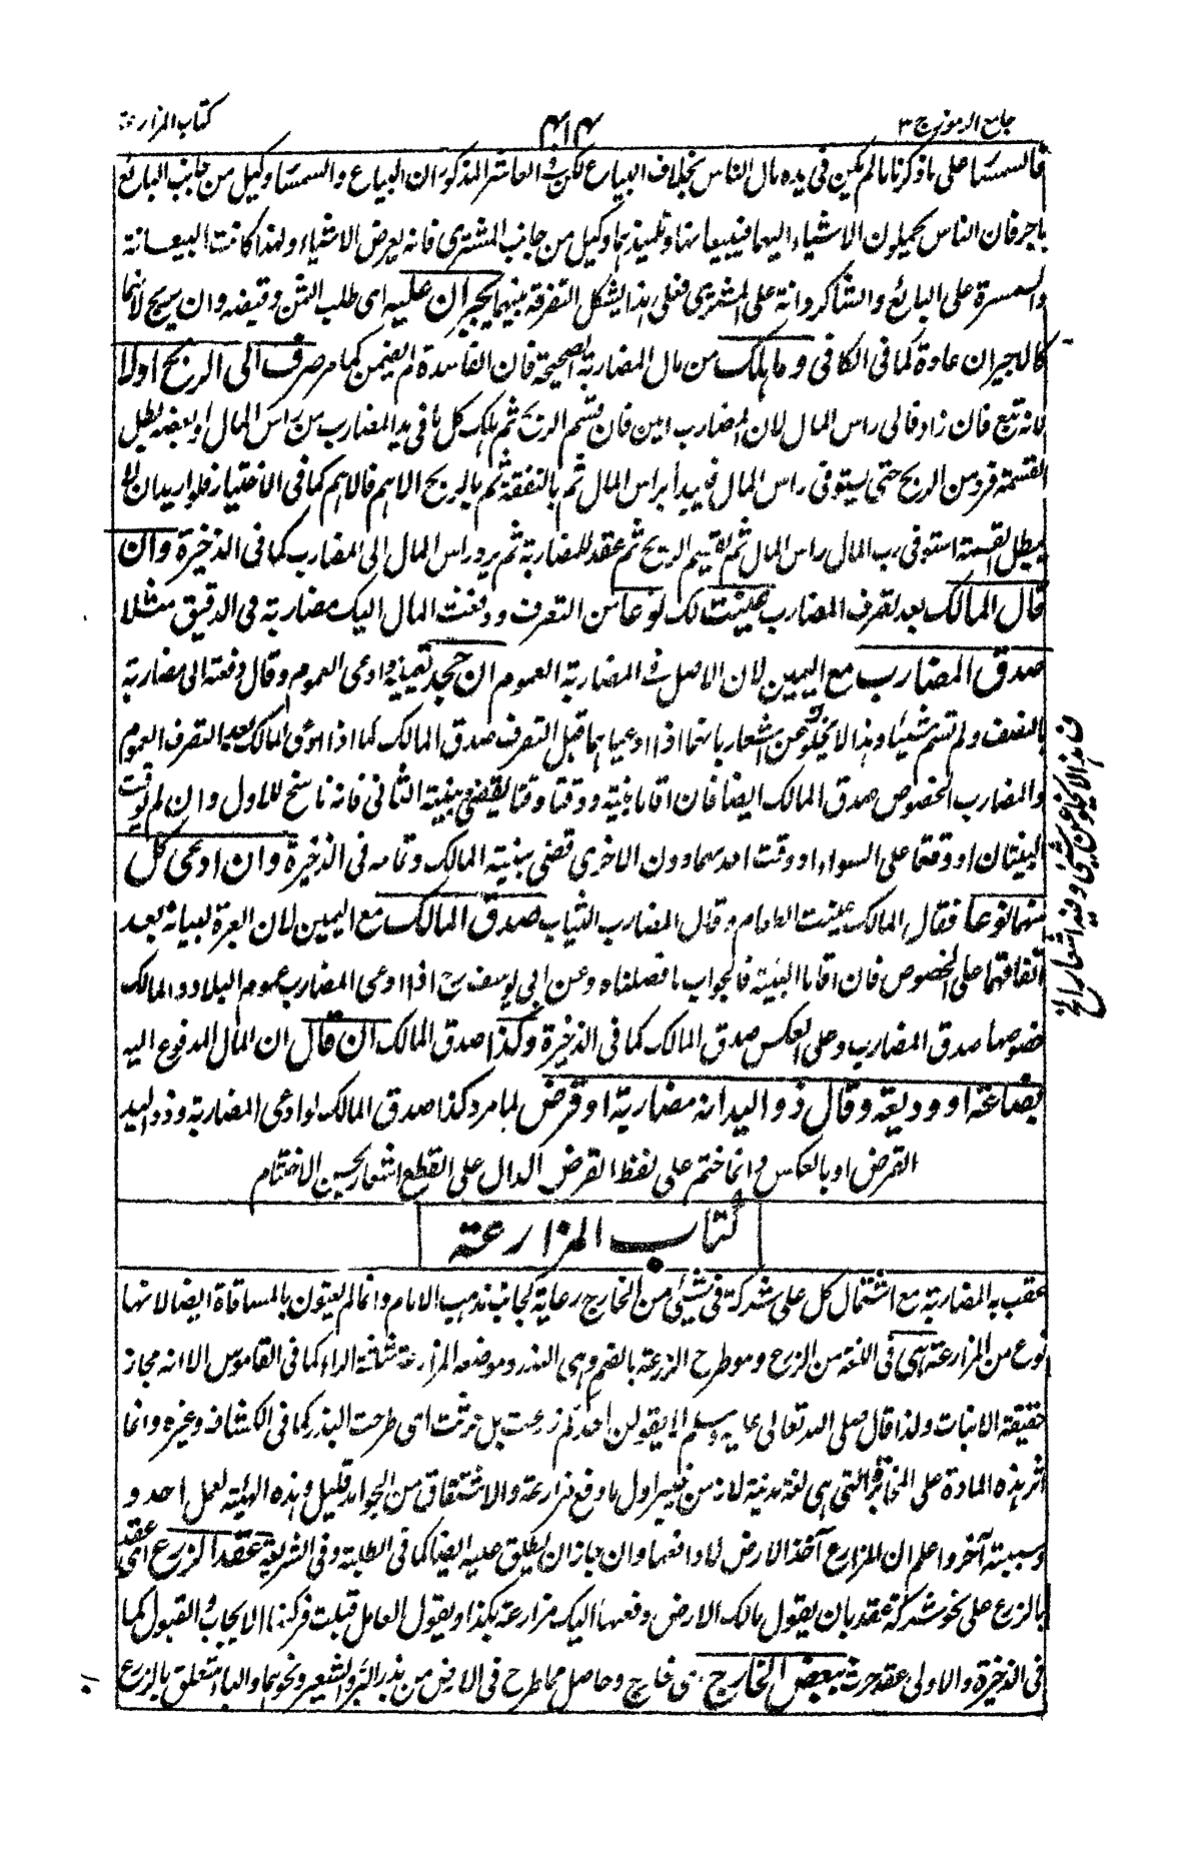 جامع الرموز ج ٣
٤١٤
كتاب المزارعة
فالسمسار على ما ذكرنا ما لم يكن فى يده مال الناس بخلاف البياع لكن فى العاشر المذكور ان البياع والسمسار وكيل من جانب البائع
باجر فان الناس يحملون الاشياء اليهما فيبيعانها وتلميذهما وكيل من جانب المشترى فانه يعرض الاشياء ولهذا كانت البيعانة
والسمسرة على البائع والشاكردانة على المشترى فعلى هذا يشكل التفرقة بينهما يجبران عليه اى طلب الثمن وقبضه وان يربح لانهما
كالاجيران عادة كما فى الكافى وما هلك من مال المضاربة الصحيحة فان الفاسدة لم يضمن كما مر صرف الى الربح اولا
لانه تبع فان زاد فالى راس المال لان المضارب امين فان قسم الربح ثم هلك كل ما فى يد المضارب من راس المال او بعضه بطل
القسمة فرد من الربح حتى يستوفى راس المال فيبدأ براس المال ثم بالنفقة ثم بالربح الاهم فالاهم كما فى الاختيار فلو اريد ان لا
يبطل القسمة استوفى رب المال راس المال ثم تقسيم الربح ثم عقد للمضاربة ثم يرد راس المال الى المضارب كما فى الذخيرة وان
قال المالك بعد تصرف المضارب عينت لك نوعا من التصرف ودفعت المال اليك مضاربة فى الدقيق مثلا
صدق المضارب مع اليمين لان الاصل فى المضاربة العموم ان جحد تعيينه وادعى العموم وقال دفعته الى مضاربة
بالنصف ولم تسم شيئا وهذا لا يخلو عن اشعار بانهما اذا ادعيا هما قبل التصرف صدق المالك كما اذا ادعى المالك بعد التصرف العموم
والمضارب الخصوص صدق المالك ايضا فان اقاما بينة ووقتا وقتا يقضى ببينة الثانى فانه ناسخ للاول وان لم يوقت
البينتان او وقتتا على السواء او وقت احدهما دون الاخرى قضى ببينة المالك وتمامه فى الذخيرة وان ادعى كل
منهما نوعا فقال المالك عينت الطعام وقال المضارب الثياب صدق المالك مع اليمين لان العبرة لبيانه بعد
اتفاقهما على الخصوص فان اقاما البينة فالجواب ما فصلناه وعن ابى يوسف رح اذا ادعى المضارب عموم البلاد والمالك
خصوصها صدق المضارب وعلى العكس صدق المالك كما فى الذخيرة وكذا صدق المالك ان قال ان المال المدفوع اليه
بضاعة او وديعة وقال ذو اليد انه مضاربة او قرض لما مر وكذا صدق المالك لو ادعى المضاربة وذو اليد
القرض او بالعكس وانما ختم على لفظ القرض الدال على القطع اشعار بحسن الاختتام
فهذا لا يخلو عن شئ وفيه اشعار الخ
كتاب المزارعة
عقب به المضاربة مع اشتمال كل على شركة فى شئ من الخارج رعاية لجانب مذهب الامام وانما لم يعنون بالمساقاة ايضا لانها
نوع من المزارعة هى فى اللغة من الزرع وهو طرح الزرعة بالضم وهى البذر وموضعه المزارعة مثلثة الراء كما فى القاموس الا انه مجاز
حقيقة الانبات ولذا قال صلى الله تعالى عليه وسلم لا يقولن احدكم زرعت بل حرثت اى طرحت البذر كما فى الكشاف وغيره وانما
اثر هذه المادة على المخابرة التى هى لغة مدنية لان من خيبر اول ما وقع مزارعة والاشتقاق من الجوامد قليل وهذه الهيئة لعمل احد و
وسببية آخر واعلم ان المزارع آخذ الارض لا دافعها وان جاز ان يطلق عليه ايضا كما فى الطلبة وفى الشريعة عقد الزرع اى عقد
بالزرع على نحو شركة عقد بان يقول مالك الارض دفعتها اليك مزارعة بكذا ويقول العامل قبلت فركنها الايجاب والقبول كما
فى الذخيرة والاولى عقد حرث ببعض الخارج اى خارج وحاصل مما طرح فى الارض من بذر البر والشعير ونحوهما والباء متعلق بالزرع